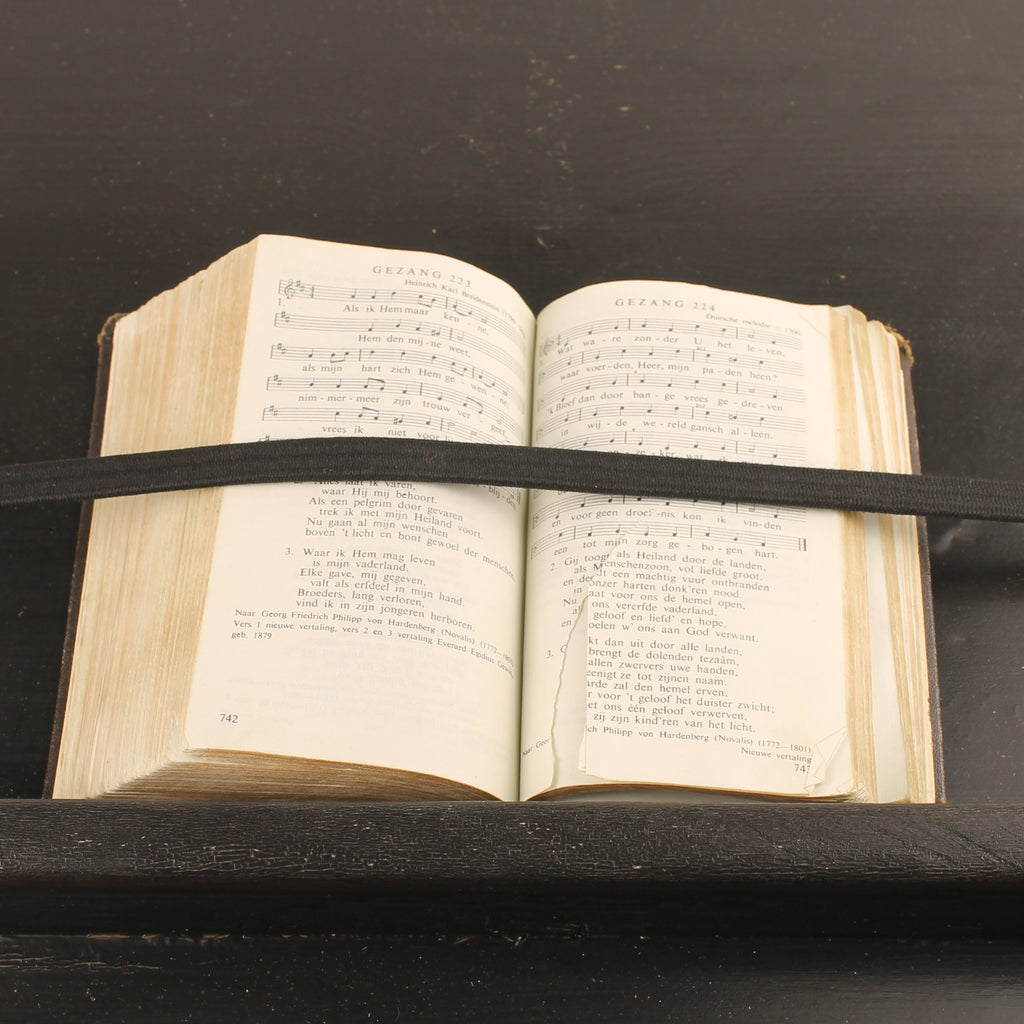 GEZANG 223
Heinrich Karl Breidenstein
1.
Als ik Hem maar ken - ne,
Hem den mij - ne weet,
als mijn hart zich Hem ge - wen - ne,
nim - mer - meer zijn trouw ver - geet,
vrees ik niet voor
Alles laat ik varen,
waar Hij mij behoort.
Als een pelgrim door gevaren
trek ik met mijn Heiland voort.
Nu gaan al mijn wenschen
boven 't licht en bont gewoel der menschen.
3. Waar ik Hem mag leven
is mijn vaderland.
Elke gave, mij gegeven,
valt als erfdeel in mijn hand.
Broeders, lang verloren,
vind ik in zijn jongeren herboren.
Naar Georg Friedrich Philipp von Hardenberg (Novalis) (1772—1801)
Vers 1 nieuwe vertaling, vers 2 en 3 vertaling Everard Egidius Gewin,
geb. 1879
742
GEZANG 224
Duitsche melodie
Wat wa - re zon - der U het le - ven,
waar voer - den, Heer, mijn pa - den heen?
'k Bleef dan door ban - ge vrees ge - dre - ven
in wij - de we - reld gansch al - leen.
en voor geen droef - nis kon ik vin - den
een tot mijn zorg ge - bo - gen hart.
2. Gij toogt als Heiland door de landen,
als Menschenzoon, vol liefde groot.
en de dt een machtig vuur ontbranden
in onzer harten donk'ren nood.
Nu aat voor ons de hemel open,
a ons vererfde vaderland,
geloof en liefd' en hope,
en oelen w' ons aan God verwant.
3. G kt dan uit door alle landen,
brengt de dolenden tezaâm,
allen zwervers uwe handen,
eenigt ze tot zijnen naam.
arde zal den hemel erven,
r voor 't geloof het duister zwicht;
et ons één geloof verwerven,
zij zijn kind'ren van het licht.
Naar Geor ich Philipp von Hardenberg (Novalis) (1772—1801)
Nieuwe vertaling
743